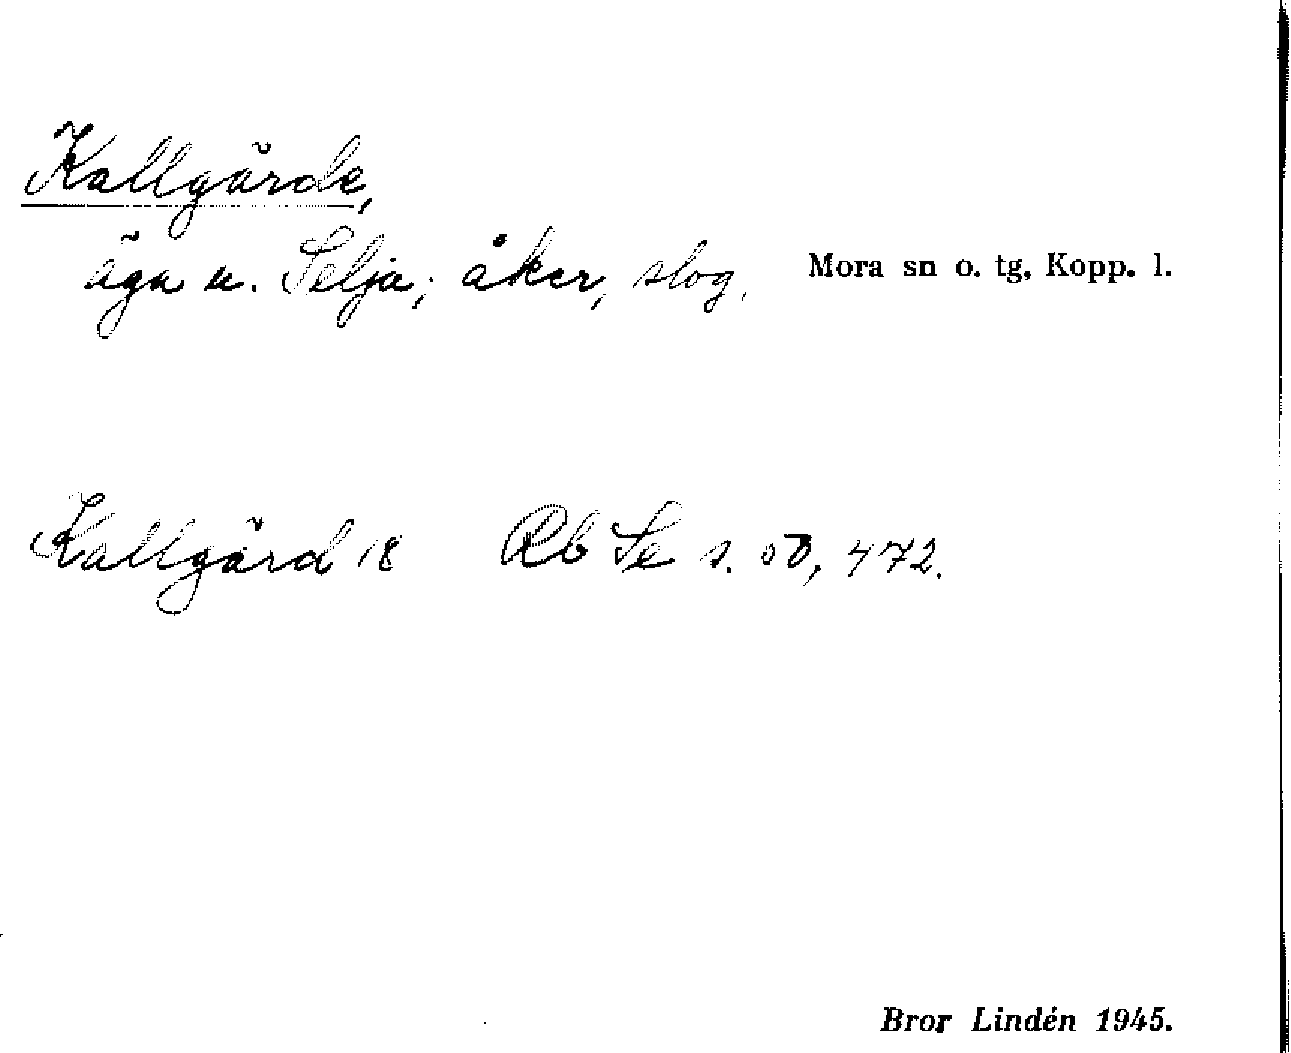 Kallgärde,
äga u. Selja; åker, slog. Mora sn o. tg, Kopp. l.
Kallgärd 18 Rb Se s. 50, 472.
Bror Lindén 1945.